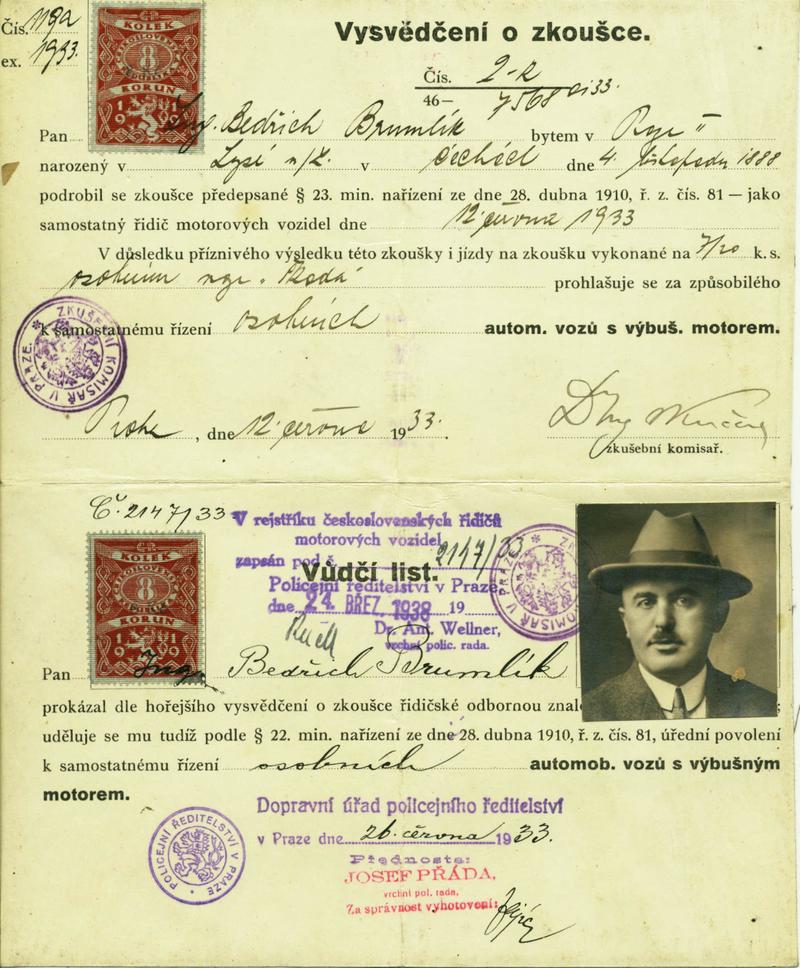 Čís. 119a
ex. 1933.
KOLEK
8
KORUN
1919
Vysvědčení o zkoušce.
Čís. 2-k
46— 7568 ai 33.
Pan Ing. Bedřich Brumlík bytem v
narozený v Lysé n/L. v Čechách dne 4. listopadu 1888
podrobil se zkoušce předepsané § 23. min. nařízení ze dne 28. dubna 1910, ř. z. čís. 81 — jako
samostatný řidič motorových vozidel dne 12 června 1933
V důsledku příznivého výsledku této zkoušky i jízdy na zkoušku vykonané na 7/20 k. s.
osobním „Škoda" prohlašuje se za způsobilého
k samostatnému řízení osobních autom. vozů s výbuš. motorem.
ZKUŠEBNÍ KOMISAŘ V PRAZE
Praha, dne 12 června 1933.
zkušební komisař.
Č. 2147/33
V rejstříku československých řidičů
motorových vozidel
zapsán pod č. 2147/33
Vůdčí list.
Policejní ředitelství v Praze
dne 24. BŘEZ. 1938 19
Dr. Ant. Wellner,
vrchní polic. rada.
KOLEK
8
KORUN
1919
Pan Ing. Bedřich Brumlík
prokázal dle hořejšího vysvědčení o zkoušce řidičské odbornou znal
uděluje se mu tudíž podle § 22. min. nařízení ze dne 28. dubna 1910, ř. z. čís. 81, úřední povolení
k samostatnému řízení osobních automob. vozů s výbušným
motorem.
POLICEJNÍ ŘEDITELSTVÍ V PRAZE
Dopravní úřad policejního ředitelství
v Praze dne 26. června 1933.
Přednosta:
JOSEF PŘÁDA,
vrchní pol. rada.
Za správnost vyhotovení: